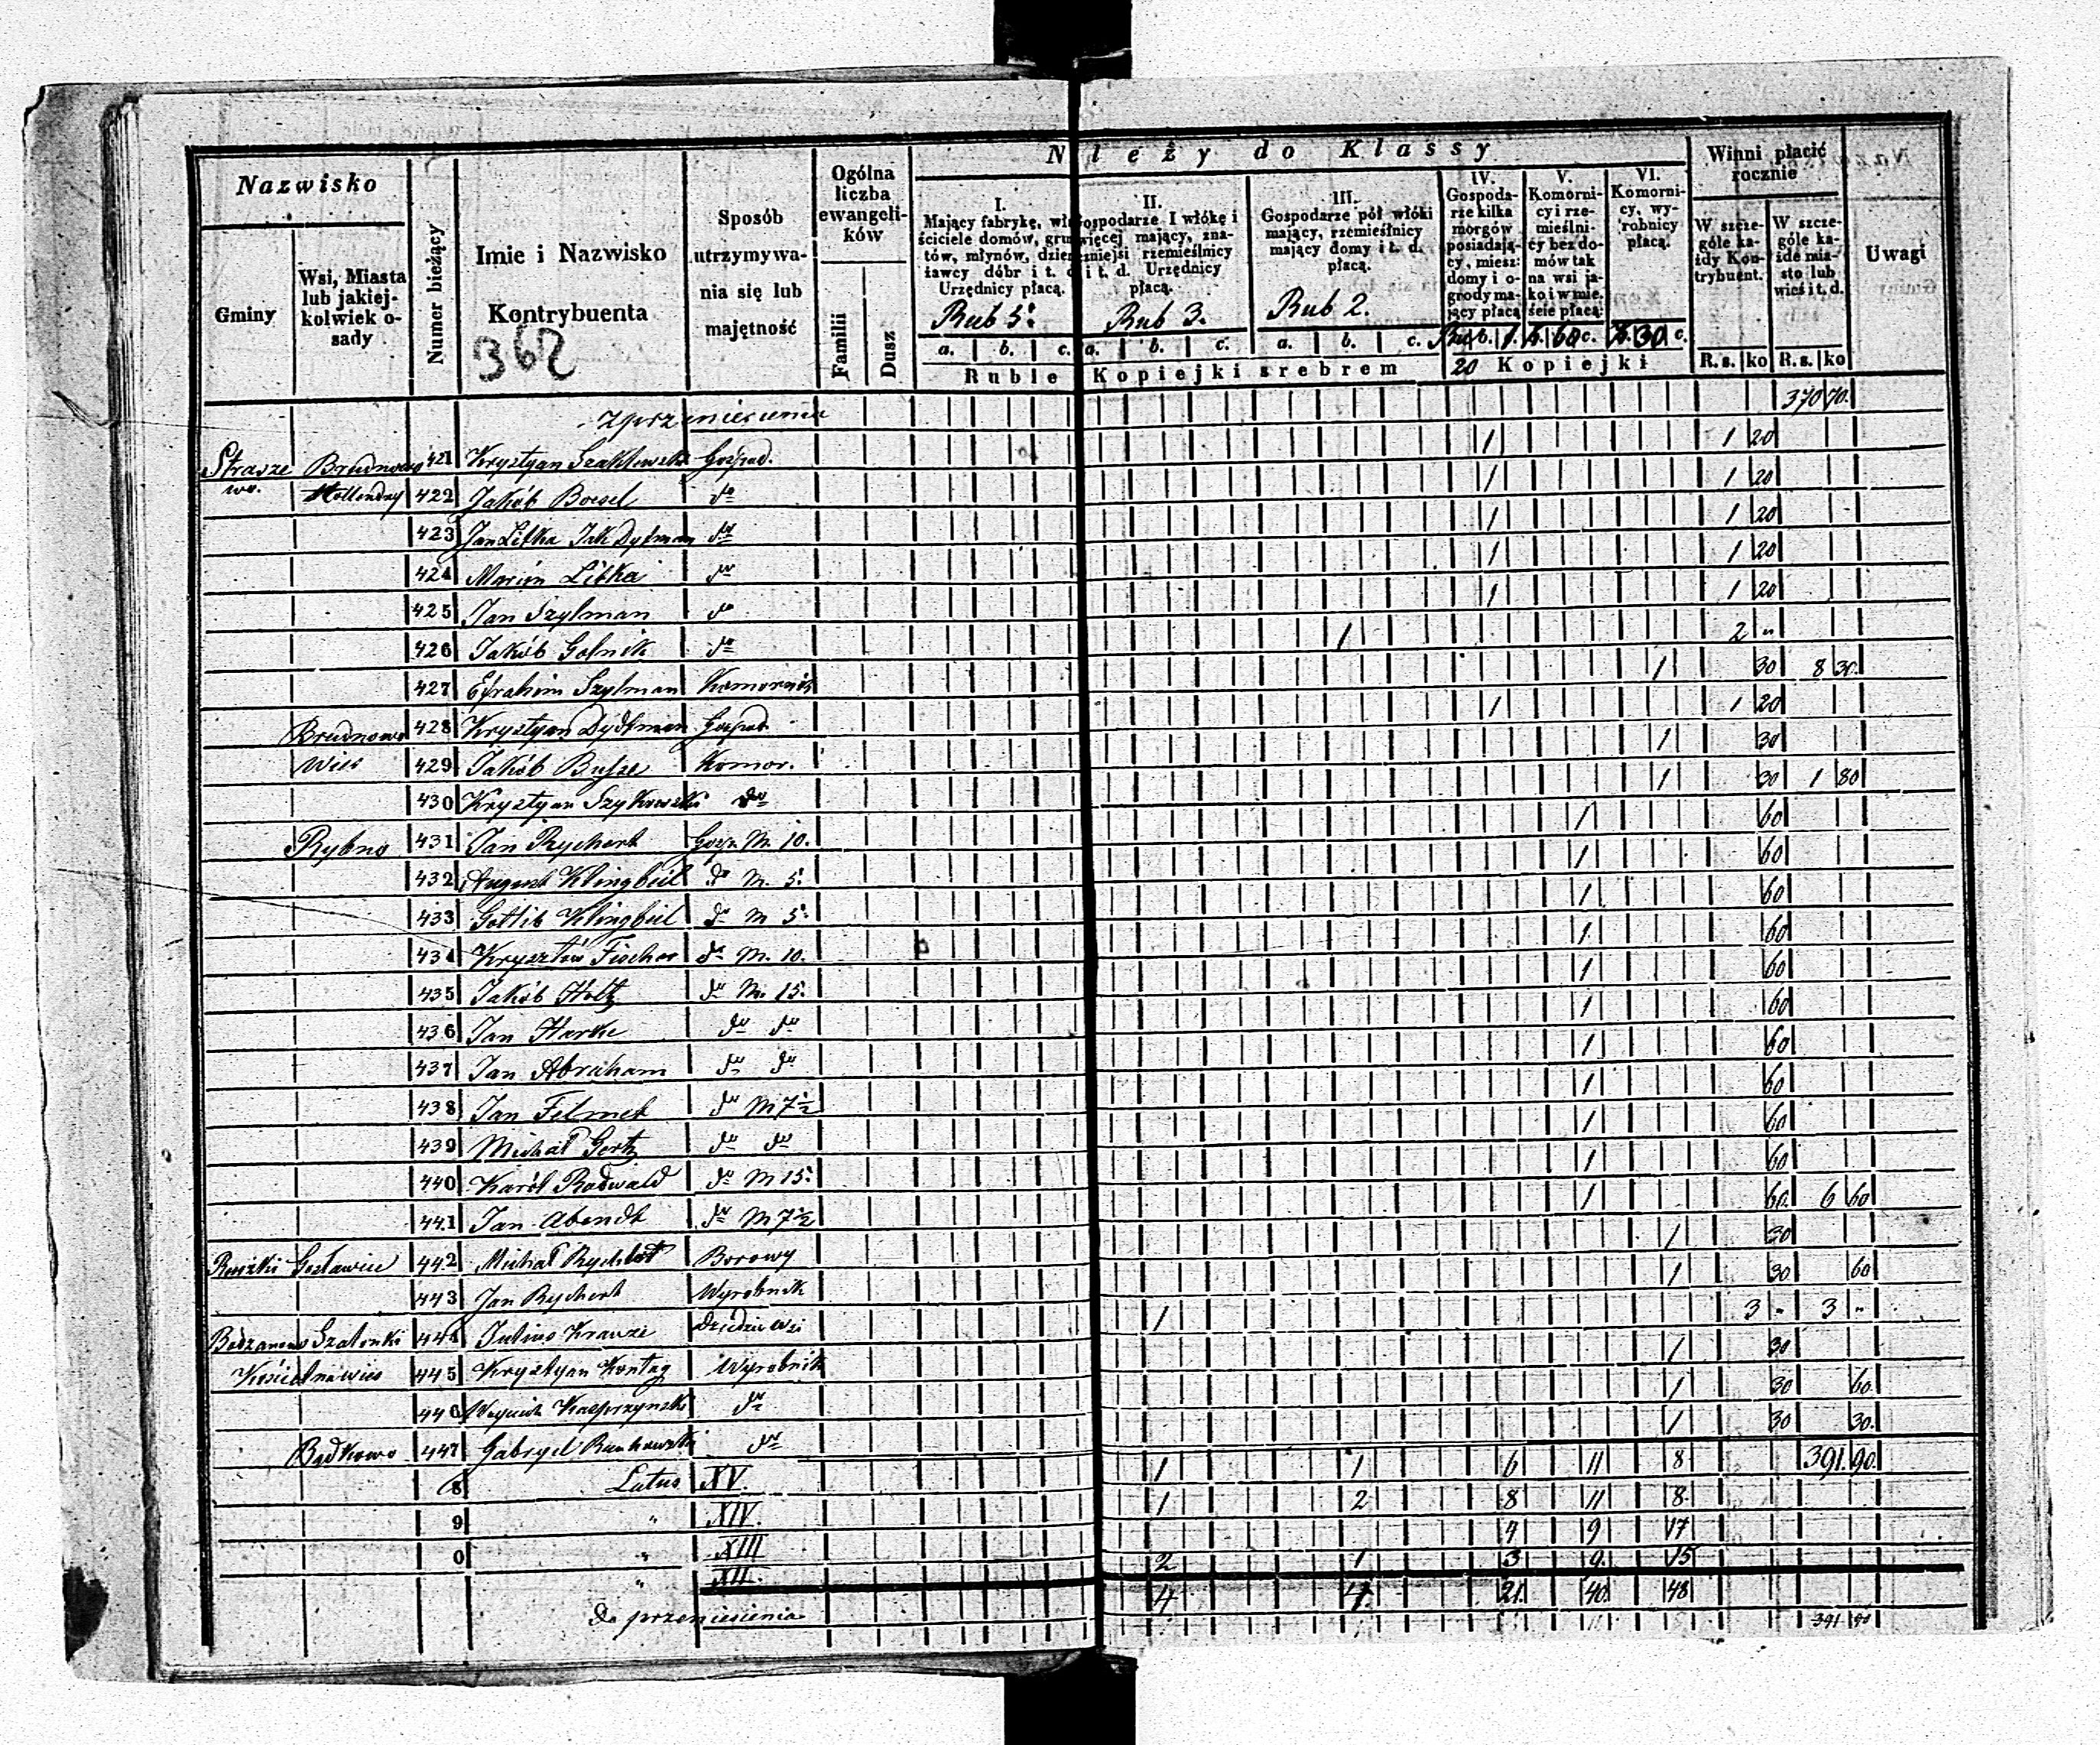 Należy do Klassy
Nazwisko
Gminy
Wsi, Miasta lub jakiej-kolwiek o-sady
Numer bieżący
Imie i Nazwisko Kontrybuenta
362
Sposób utrzymywa-nia się lub majętność
Ogólna liczba ewangeli-ków
Familii
Dusz
I. Mający fabrykę, wła-ściciele domów, grun-tów, młynów, dzier-żawcy dóbr i t. d. Urzędnicy płacą.
Rub 5.
II. Gospodarze I włókę i więcej mający, zna-czniejsi rzemieślnicy i t. d. Urzędnicy płacą.
Rub 3.
III. Gospodarze pół włóki mający, rzemieślnicy mający domy i t. d. płacą.
Rub 2.
IV. Gospoda-rze kilka morgów posiadają-cy, miesz: domy i o-grody ma-jący płacą
Rub. 1. 20
V. Komorni-cy i rze-mieślni-cy bez do-mów tak na wsi ja-ko i w mie-ście płacą:
60
VI. Komorni-cy, wy-robnicy płacą.
30
Winni płacić rocznie
W szcze-góle ka-żdy Kon-trybuent.
W szcze-góle ka-żde mia-sto lub wieś i t. d.
Uwagi
a. b. c. a. b. c. a. b. c.
Ruble Kopiejki srebrem Kopiejki R.s. ko R.s. ko
Z przeniesienia 370 70.
Straszewo. Brudnowo 421 Krystyan Szaktowski Gospod. 1 1 20
Hollendry 422 Jakób Boesel do 1 1 20
423 Jan Litka Jak Dytman do 1 1 20
424 Marcin Litka do 1 1 20
425 Jan Szylman do 1 1 20
426 Jakób Golnik do 1 2 "
427 Efrahim Szylman Komornik 1 30 8 30.
Brudnowo 428 Krystyan Dydtman Gospod. 1 1 20
Wieś 429 Jakób Busze Komor. 1 30
430 Krystyan Szykowski do 1 30 1 80
Rybno 431 Jan Rychert Gosp. M. 10. 1 60
432 August Klingbeil do M. 5. 1 60
433 Gottlib Klingbiel do M 5. 1 60
434 Krysztów Fischer do M. 10. 1 60
435 Jakób Holtz do M. 15. 1 60
436 Jan Harke do do 1 60
437 Jan Abraham do do 1 60
438 Jan Felmet do M 7½ 1 60
439 Michał Gertz do do 1 60
440 Karól Radwald do M 15. 1 60
441 Jan Abendt do M 7½ 1 60. 6 60
Ruszki Gosławice 442 Michał Rychert Borowy 1 30
443 Jan Rychert Wyrobnik 1 30 60
Bodzanowo Szalonki 444 Juliws Krauze Dziedzic wsi 1 3 " 3 "
Kościelnawieś 445 Krystyan Kontag Wyrobnik 1 30
446 Wojciech Kasprzynski do 1 30 60.
Bądkowo 447 Gabryel do 1 30 30.
8 Latus XV. 1 1 6 11 8 391. 90.
9 " XIV. 1 2 8 11 8
0 " XIII 4 9 17
" XII. 2 1 3 9. 15
4 4. 21. 40. 48
Do przeniesienia 391 90